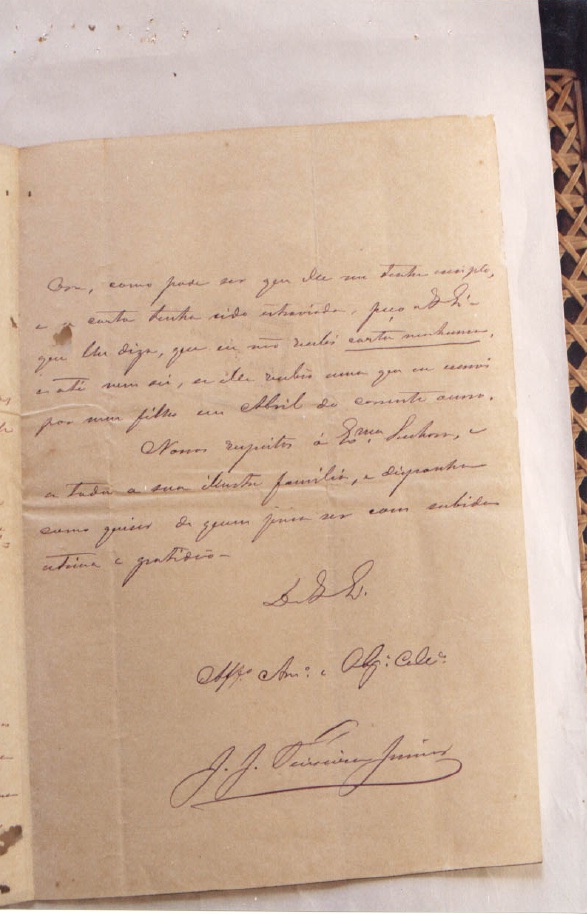 Ora, como pode ser que elle me tenha escripto,
e a carta tenha sido extraviada, peço a V Exª
que lhe diga, que eu não recebi carta nenhuma,
e até nem sei, se elle recebeu uma que eu enviei
por meu filho em Abril do corrente anno.
Nossos respeitos á Exma. Senhora, e
a toda a sua illustre familia, e disponha
como quizer de quem préza ser com subida
estima e gratidão—
De V Ex.
Affº. Amº. e
J. J. Junior